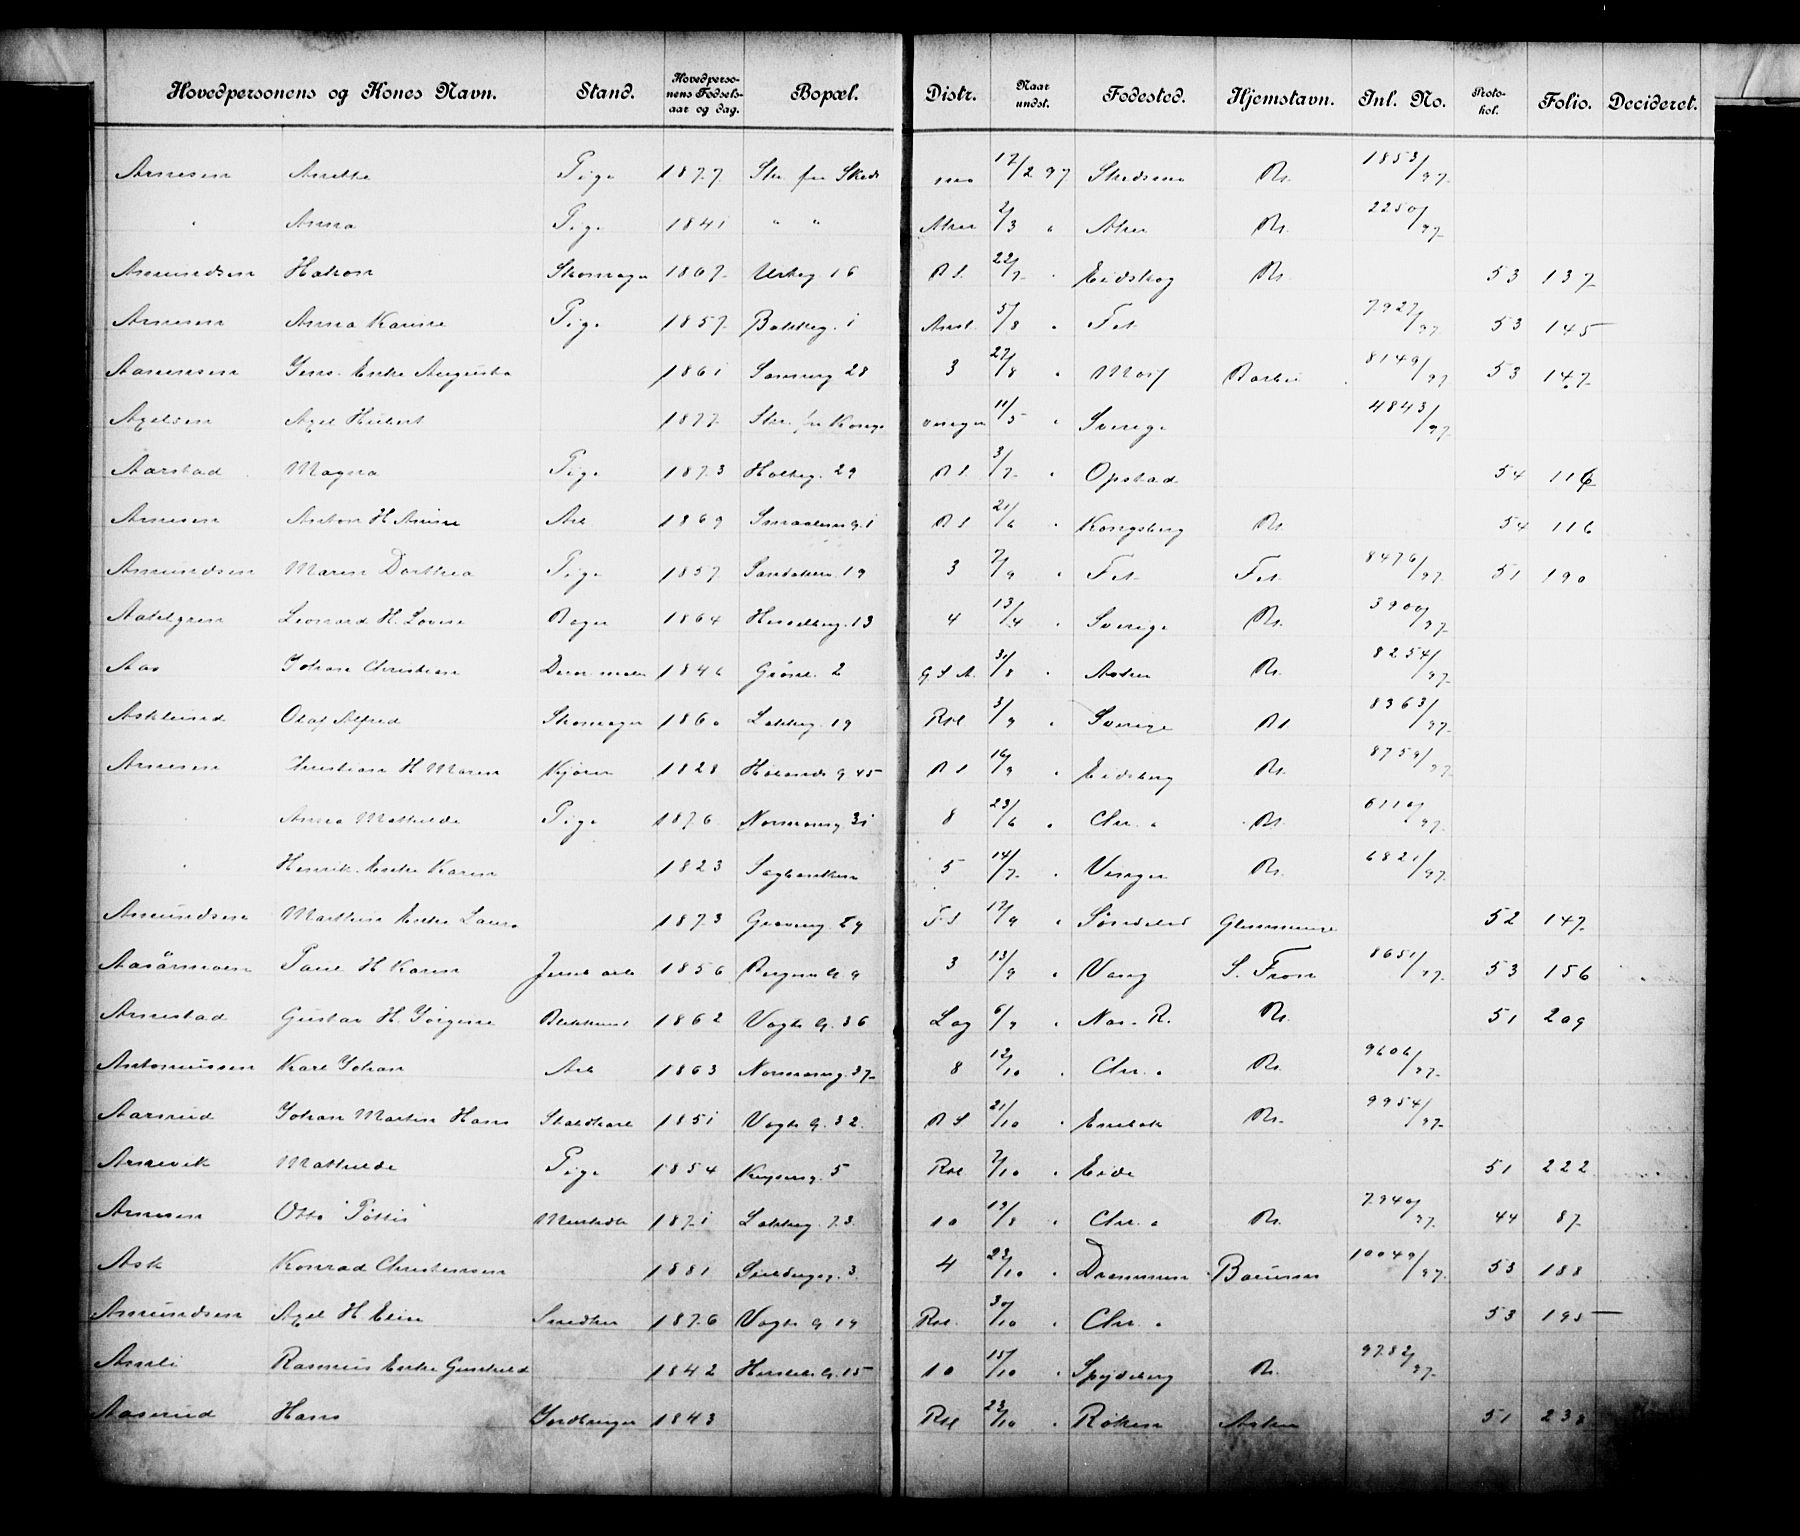 Hovedpersonens og Kones Navn. Stand. Hovedperso-nens Fødsels-aar og dag. Bopæl. Distr. Naar undst. Fødested. Hjemstavn. Inl. No. Proto-kol. Folio. Decideret.
Arnesen Anette Pige 1877 Str. fra Skeds mo 17/2 97 Skedsmo Kr. 1853/97
" Anna Pige 1841 " " Aker 2/3 " Aker Kr. 2250/97
Amundsen Hakon Skomager 1867 16 22/7 " Eidskog Kr. 53 137
Arnesen Anna Karine Pige 1857 Bakkeg. 1 5/8 " Fet 7927/97 53 145
Aanensen Jens. Enke Augusta 1861 28 3 27/8 " Barbu 8149/97 53 147
Axelsen Axel 1877 Str. fra Kongs vinger 11/5 " Sverige 4843/97
Aarstad Magna Pige 1873 Holteg. 29 3/7 " Opstad 54 116
Arnesen Anton H Anine Arb 1869 Smaalensg. 1 21/6 " Kongsberg Kr. 54 116
Amundsen Maren Dorthea Pige 1857 Sandakerv. 19 3 7/9 " Fet Fet 8476/97 51 190
Leonard H. Lovise Bager 1864 Hesselbg. 13 4 13/4 " Sverige Kr. 3900/97
Aas Johan Christian 1846 Grønl. 2 31/8 " Aker Kr. 8254/97
Asklund Olaf Alfred Skomager 1860 Lakkeg. 19 Rol 3/9 " Sverige 8363/97
Arnesen Christian H Maren Kjører 1828 G 45 16/9 " Eidsberg Kr. 8759/97
Anna Mathilde Pige 1876 Normannsg. 31 8 23/6 " Chr. a Kr. 6110/97
" Henrik. Enke Karen 1823 Sagbanken 5 14/7 " Vinger Kr. 6821/97
Amundsen Mathias Enke Laura 1873 29 17/9 " Søndeled Glemminge 52 147
Paul H Karen Jernb arb 1856 Bergens G 9 3 13/9 " Vang S. Fron 8651/97 53 156
Arnestad Gustav H. Jørgine Blikkensl 1862 Vogts G. 36 Lag 6/9 " Nes. R. Kr. 51 209
Antoniussen Karl Johan Arb 1863 Normannsg. 37 8 12/10 " Chr. a Kr. 9606/97
Aarsrud Johan Martin Hans Staldkarl 1851 Vogts G. 32 21/10 " Enebak Kr. 9954/97
Arnevik Mathilde Pige 1854 Keysersg. 5 Rol 7/10 " Eide 51 222
Arnesen Otto "Pøttis" 1871 Lakkeg. 73 10 19/8 " Chr. a Kr. 7940/97 44 87
Ask Konrad Christensen 1881 3 4 23/10 " Drammen Bærums 10049/97 53 188
Amundsen Axel H Elise Snedker 1876 Vogts G 19 Rol. 30/10 " Chr. a 53 195
Amli Rasmus Enke Gunhild 1842 Herslebs G. 15 10 15/10 " Spydeberg Kr. 9782/97
Aaserud Hans Jordbruger 1843 Rol 23/10 " Røken Asker 51 238